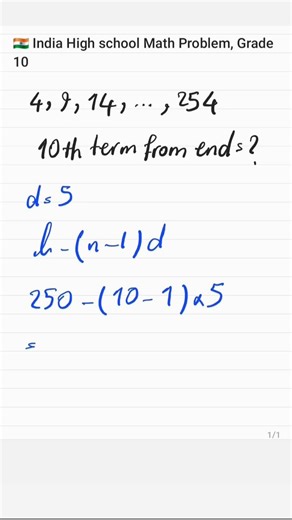 🇮🇳 India High school Math Problem, Grade
10
4, 9, 14, ..., 254
10th term from end = ?
d = 5
l - (n - 1) d
250 - (10 - 1) × 5
=
1/1